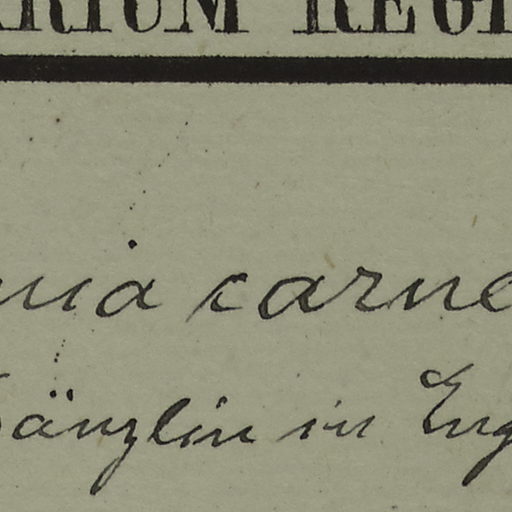 ARIUM REGI
nia carne
Gänzlin in Eng